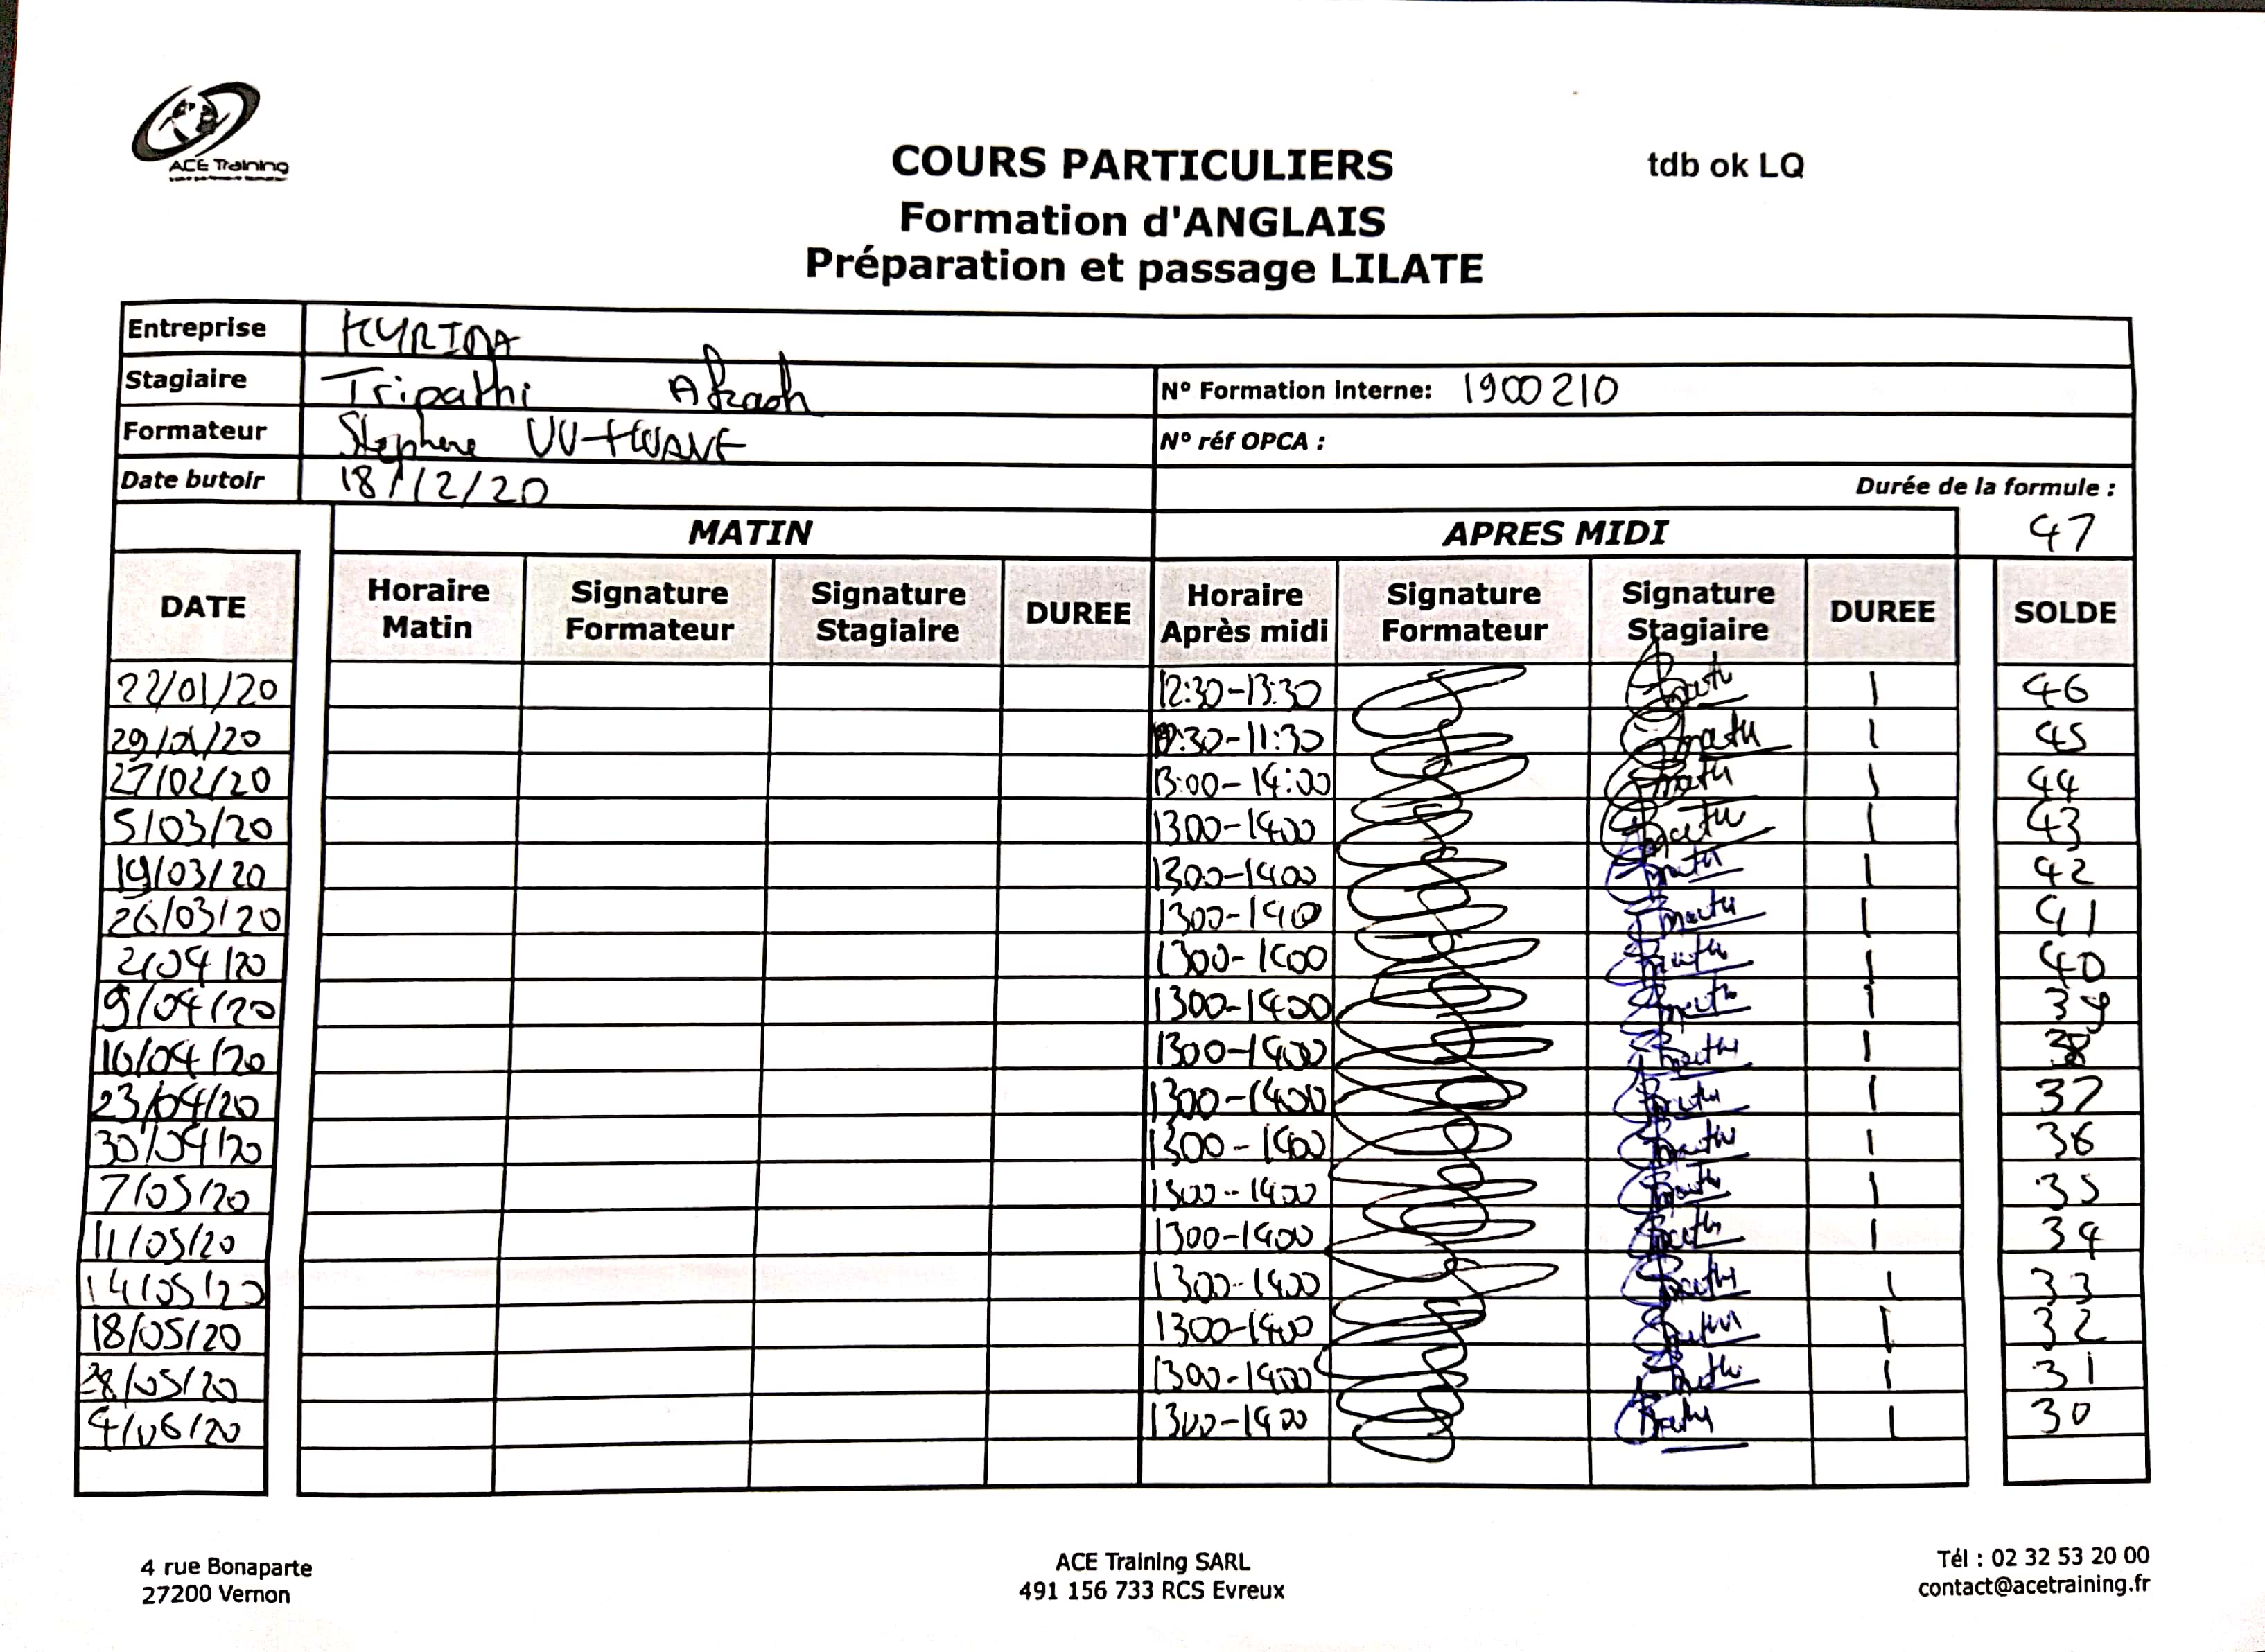 ACE Training
COURS PARTICULIERS
tdb ok LQ
Formation d'ANGLAIS
Préparation et passage LILATE
Entreprise
Stagiaire Tripathi Akash N° Formation interne: 1900210
Formateur Stephene N° réf OPCA :
Date butoir 18/12/20 Durée de la formule :
MATIN APRES MIDI 47
DATE Horaire Matin Signature Formateur Signature Stagiaire DUREE Horaire Après midi Signature Formateur Signature Stagiaire DUREE SOLDE
22/01/20 12:30-13:30 1 46
29/01/20 :30-11:30 1 45
27/02/20 13:00-14:00 1 44
5/03/20 1300-1400 1 43
19/03/20 1300-1400 1 42
26/03/20 1300-1400 1 41
2/04/20 1300-1400 1 40
9/04/20 1300-1400 1 39
16/04/20 1300-1400 1 38
23/04/20 1300-1400 1 37
30/04/20 1300-1400 1 36
7/05/20 1300-1400 1 35
11/05/20 1300-1400 1 34
14/05/20 1300-1400 1 33
18/05/20 1300-1400 1 32
28/05/20 1300-1400 1 31
4/06/20 1300-1400 1 30
4 rue Bonaparte
27200 Vernon
ACE Training SARL
491 156 733 RCS Evreux
Tél : 02 32 53 20 00
contact@acetraining.fr